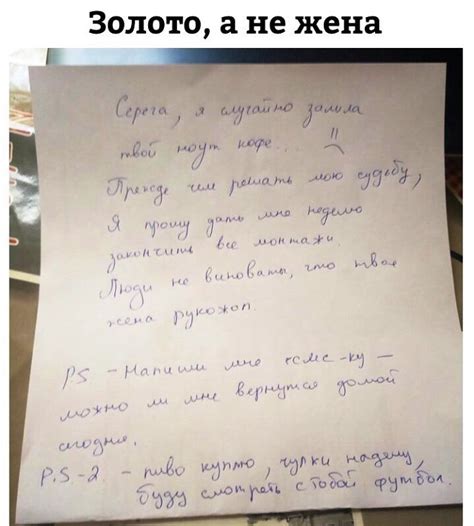 Золото, а не жена
Серега, я случайно залила
твой ноут кофе...
Прежде чем решать мою судьбу,
Я прошу дать мне неделю
закончить все монтажи.
Люди не виноваты, что твоя
жена рукожоп.
P.S – Напиши мне смс-ку –
можно ли мне вернуться домой
сегодня.
P.S.-2. – пиво куплю, чулки надену,
буду смотреть с тобой футбол.